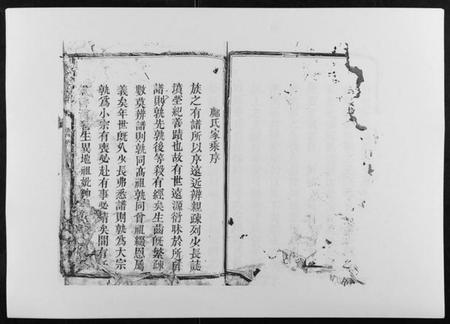 鄭氏家乘序
族之有譜所以序遠近辨親疎列少長誌
墳塋紀善蹟也故有世遠源衍昧於所
諸則孰先孰後等殺有經矣生齒既繁疎
數莫辨譜則孰同高祖孰同曾祖縀恩屬
義矣年世既久少長弗悉譜則孰為大宗
孰為小宗有喪必赴有事必請矣間有
生異地祖妣